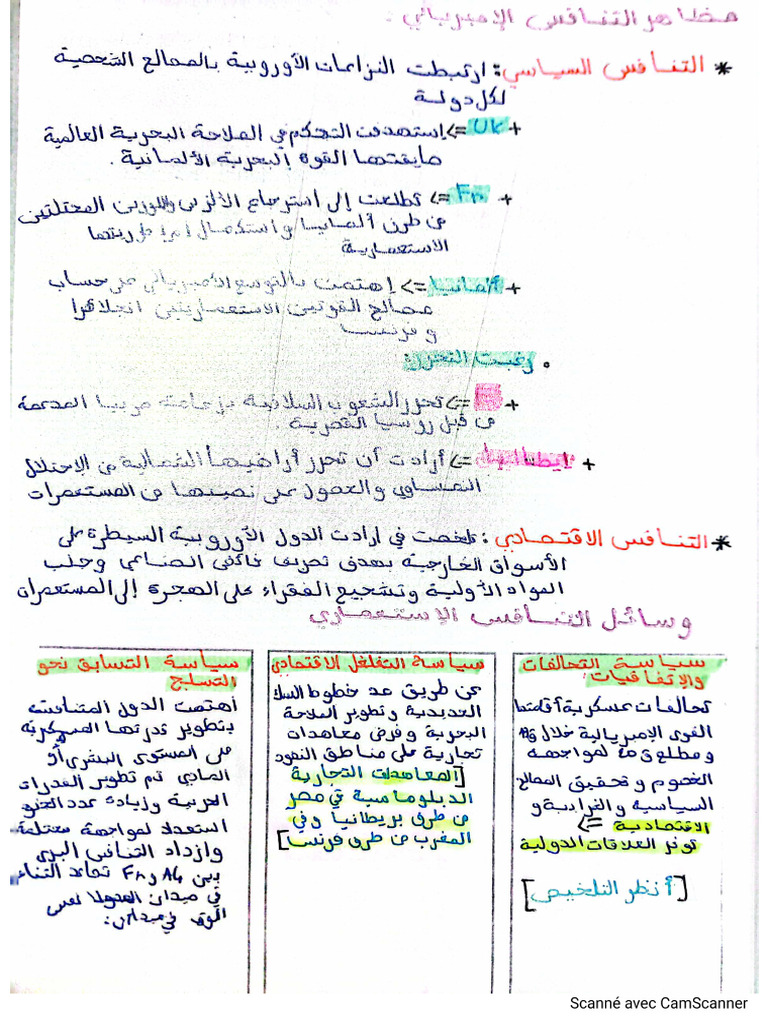 مظاهر التنافس الإمبريالي:
* التنافس السياسي: ارتبطت النزاعات الأوروبية بالمصالح الشخصية
لكل دولة
+ UK => إستهدفت التحكم في الملاحة البحرية العالمية
القوة البحرية الألمانية.
+ Fr => تطلعت إلى استرجاع الألزاس واللورين المحتلتين
من طرف ألمانيا واستكمال إمبراطوريتها
الاستعمارية
+ ألمانيا => إهتمت بالتوسع الأمبريالي على حساب
مصالح القوتين الاستعماريتين انجلاترا
وفرنسا
• رغبت التحرر:
+ => تحرر الشعوب السلافية بزعامة صربيا المدعمة
من قبل روسيا القصرية.
+ إيطاليا => أرادت أن تحرر أراضيها الشمالية من الإحتلال
النمساوي والحصول على نصيبها من المستعمرات
* التنافس الاقتصادي: تلخصت في ارادت الدول الأوروبية السيطرة على
الأسواق الخارجية بهدف تصريف فائض الصناعي وجلب
المواد الأولية وتشجيع الفقراء على الهجرة إلى المستعمرات
وسائل التنافس الإستعماري
سياسة التحالفات
والإتفاقيات:
تحالفات عسكرية أقامتها
القوى الإمبريالية خلال ق19
ومطلع ق20 لمواجهة
الخصوم وتحقيق المصالح
السياسية والترابية و
الاقتصادية =>
توتر العلاقات الدولية
[أنظر التلخيص]
سياسة التغلغل الاقتصادي
عن طريق مد خطوط السكك
الحديدية وتطوير الملاحة
البحرية وفرض معاهدات
تجارية على مناطق النفوذ
[المعاهدات التجارية
الدبلوماسية في مصر
من طرف بريطانيا وفي
المغرب من طرف فرنسا]
سياسة التسابق نحو
التسلح
أهتمت الدول المتنافسة
بتطوير قدرتها العسكرية
على المستوى البشري أو
المادي تم تطوير القدرات
الحربية وزيادة عدد الجنود
استعداد لمواجهة محتملة
وازداد التنافس البري
بين Al و Fr
في ميدان
في ميدان:
Scanné avec CamScanner